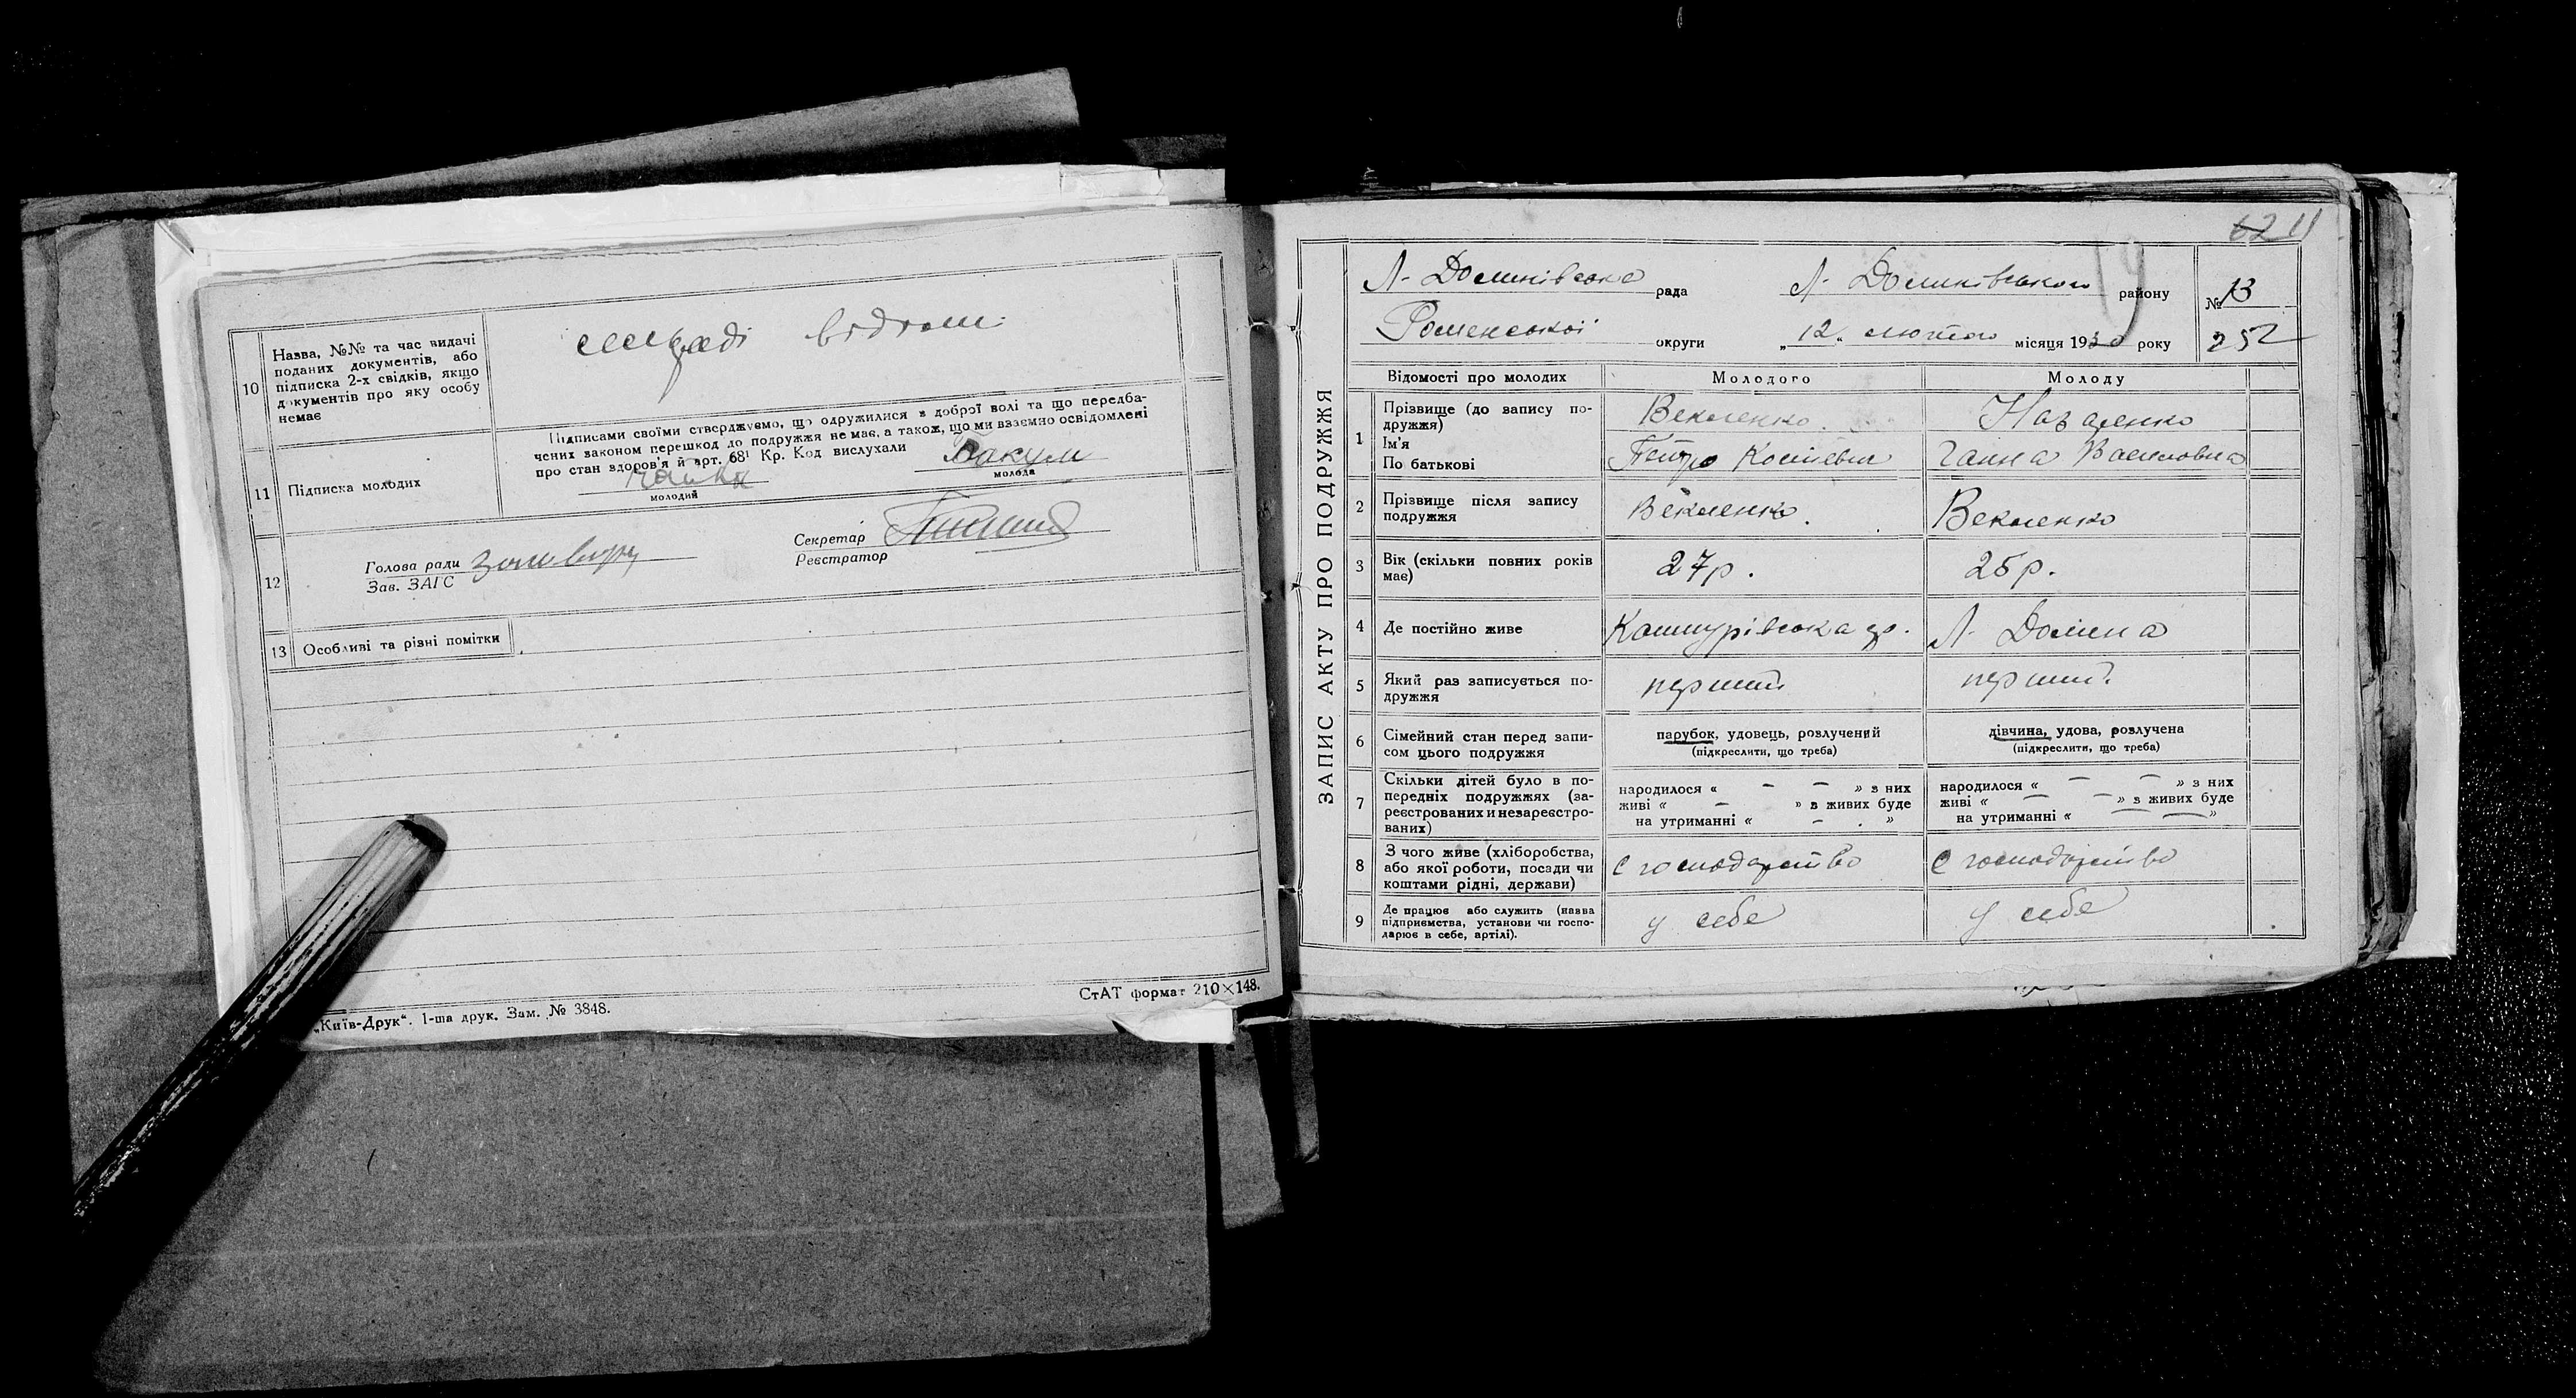 10
Назва, №№ та час видачі
поданих документів, або
підписка 2-х свідків, якщо
документів про яку особу
немає
сельраді відомі
Підписами своїми стверджуємо, що одружилися з доброї волі та що передба-
чених законом перешкод до подружжя не має, а також, що ми взаємно освідомлені
про стан здоров'я й арт. 68¹ Кр. Код вислухали
11
Підписка молодих
молодий
Бакум
молода
12
Голова ради
Зав. ЗАГС
Секретар
Реєстратор
13
Особливі та різні помітки
„Київ-Друк“. 1-ша друк. Зам. № 3848.
СтАТ формат 210×148.
62 11
ЗАПИС АКТУ ПРО ПОДРУЖЖЯ
Л-Долинівська рада
Л-Долинківського району
№ 13
Роменської округи
„12„ лютого місяця 1930 року
252
Відомості про молодих
Молодого
Молоду
1
Прізвище (до запису по-
дружжя)
Векленко
Назаренко
Ім'я
По батькові
Петро Костьевич
Ганна Василовна
2
Прізвище після запису
подружжя
Векленко
Векленко
3
Вік (скільки повних років
має)
27р.
25р.
4
Де постійно живе
Л-Долина
5
Який раз записується по-
дружжя
перший
перший.
6
Сімейний стан перед запи-
сом цього подружжя
парубок, удовець, розлучений
(підкреслити, що треба)
дівчина, удова, розлучена
(підкреслити, що треба)
7
Скільки дітей було в по-
передніх подружжях (за-
реєстрованих и незареєстро-
ваних)
народилося « – – » з них
живі « – » з живих буде
на утриманні « – »
народилося « – – » з них
живі « – – » з живих буде
на утриманні « – – »
8
З чого живе (хліборобства,
або якої роботи, посади чи
коштами рідні, держави)
с господарство
с господарство
9
Де працює або служить (назва
підприємства, установи чи госпо-
дарює в себе, артілі).
у себе
у себе